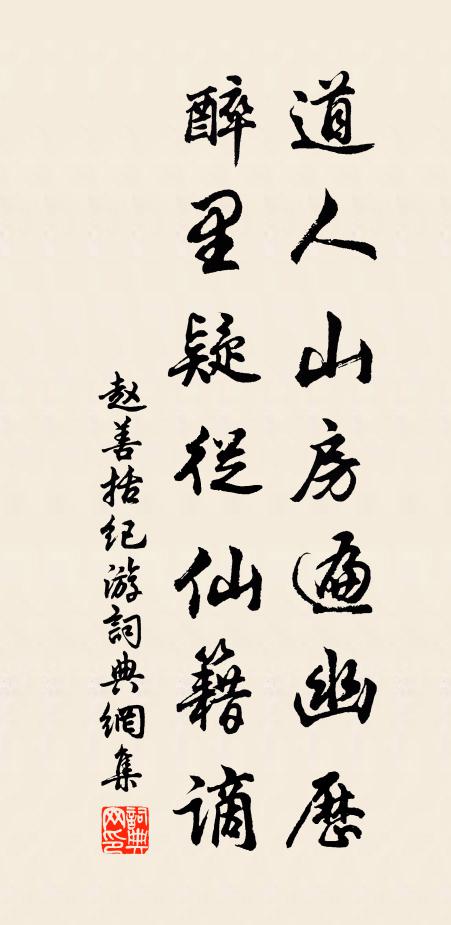 道人山房遍幽歷
醉里疑從仙籍謫
赵善括纪游詞典網集
詞典网印